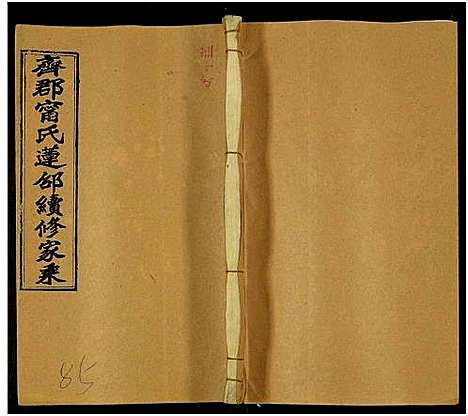 齊郡甯氏蓮邵續修家乘
85